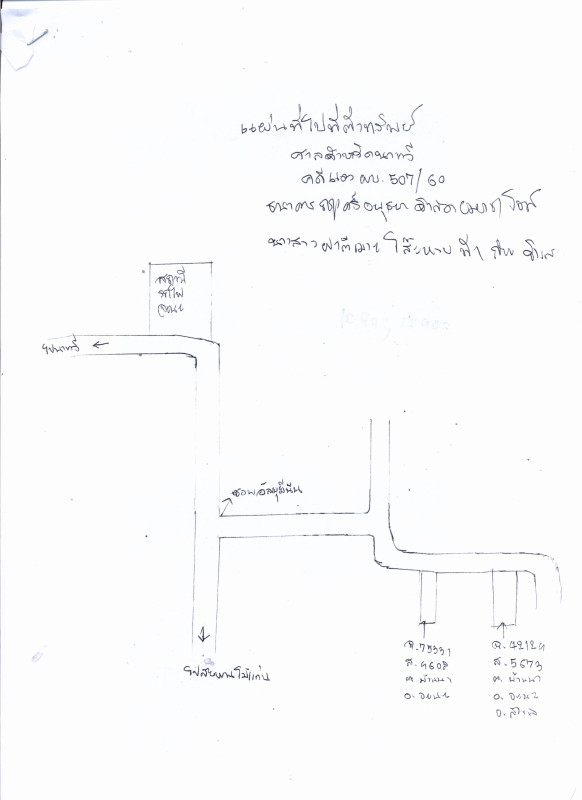 แผนที่ไปที่ตั้งทรัพย์
ศาลจังหวัดนาทวี
คดีแดง ผบ. 507/60
ธนาคาร กรุงศรีอยุธยา จำกัด (มหาชน) โจทก์
นางสาวฝาตีเมาะ ที่ 1 กับ
สถานี
รถไฟ
จะนะ
ไปนาทวี
ซอย
ไปสะพานไม้แก่น
ฉ.75331
ส.4608
ต.บ้านนา
อ.จะนะ
ฉ.42124
ส.5673
ต.บ้านนา
อ.จะนะ
จ.สงขลา